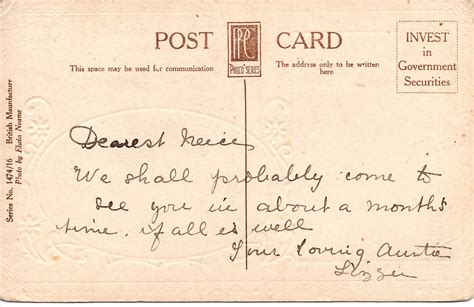 POST CARD
PPC
PHILCO SERIES
This space may be used for communication
The address only to be written
here
INVEST
in
Government
Securities
Series No. 1474/16 British Manufacture
Photo by Elwin Neame
Dearest Neice
We shall probably come to
see you in about a months
time, if all is well
Your loving Auntie
Lizzie